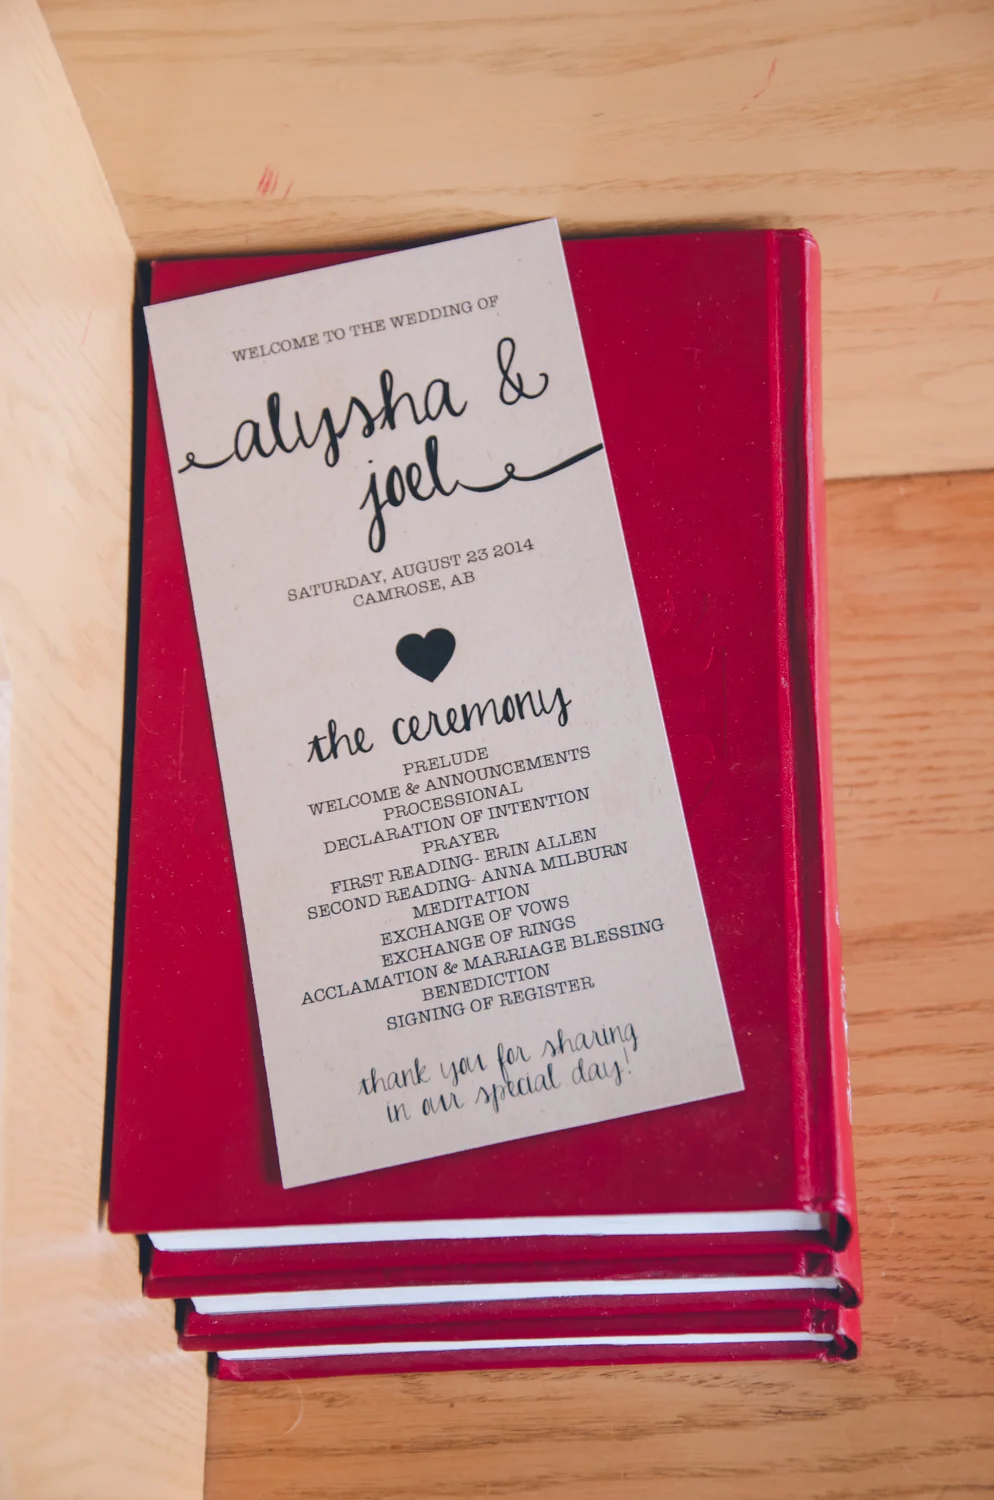 WELCOME TO THE WEDDING OF
alysha &
joel
SATURDAY, AUGUST 23 2014
CAMROSE, AB
the ceremony
PRELUDE
WELCOME & ANNOUNCEMENTS
PROCESSIONAL
DECLARATION OF INTENTION
PRAYER
FIRST READING- ERIN ALLEN
SECOND READING- ANNA MILBURN
MEDITATION
EXCHANGE OF VOWS
EXCHANGE OF RINGS
ACCLAMATION & MARRIAGE BLESSING
BENEDICTION
SIGNING OF REGISTER
thank you for sharing
in our special day!